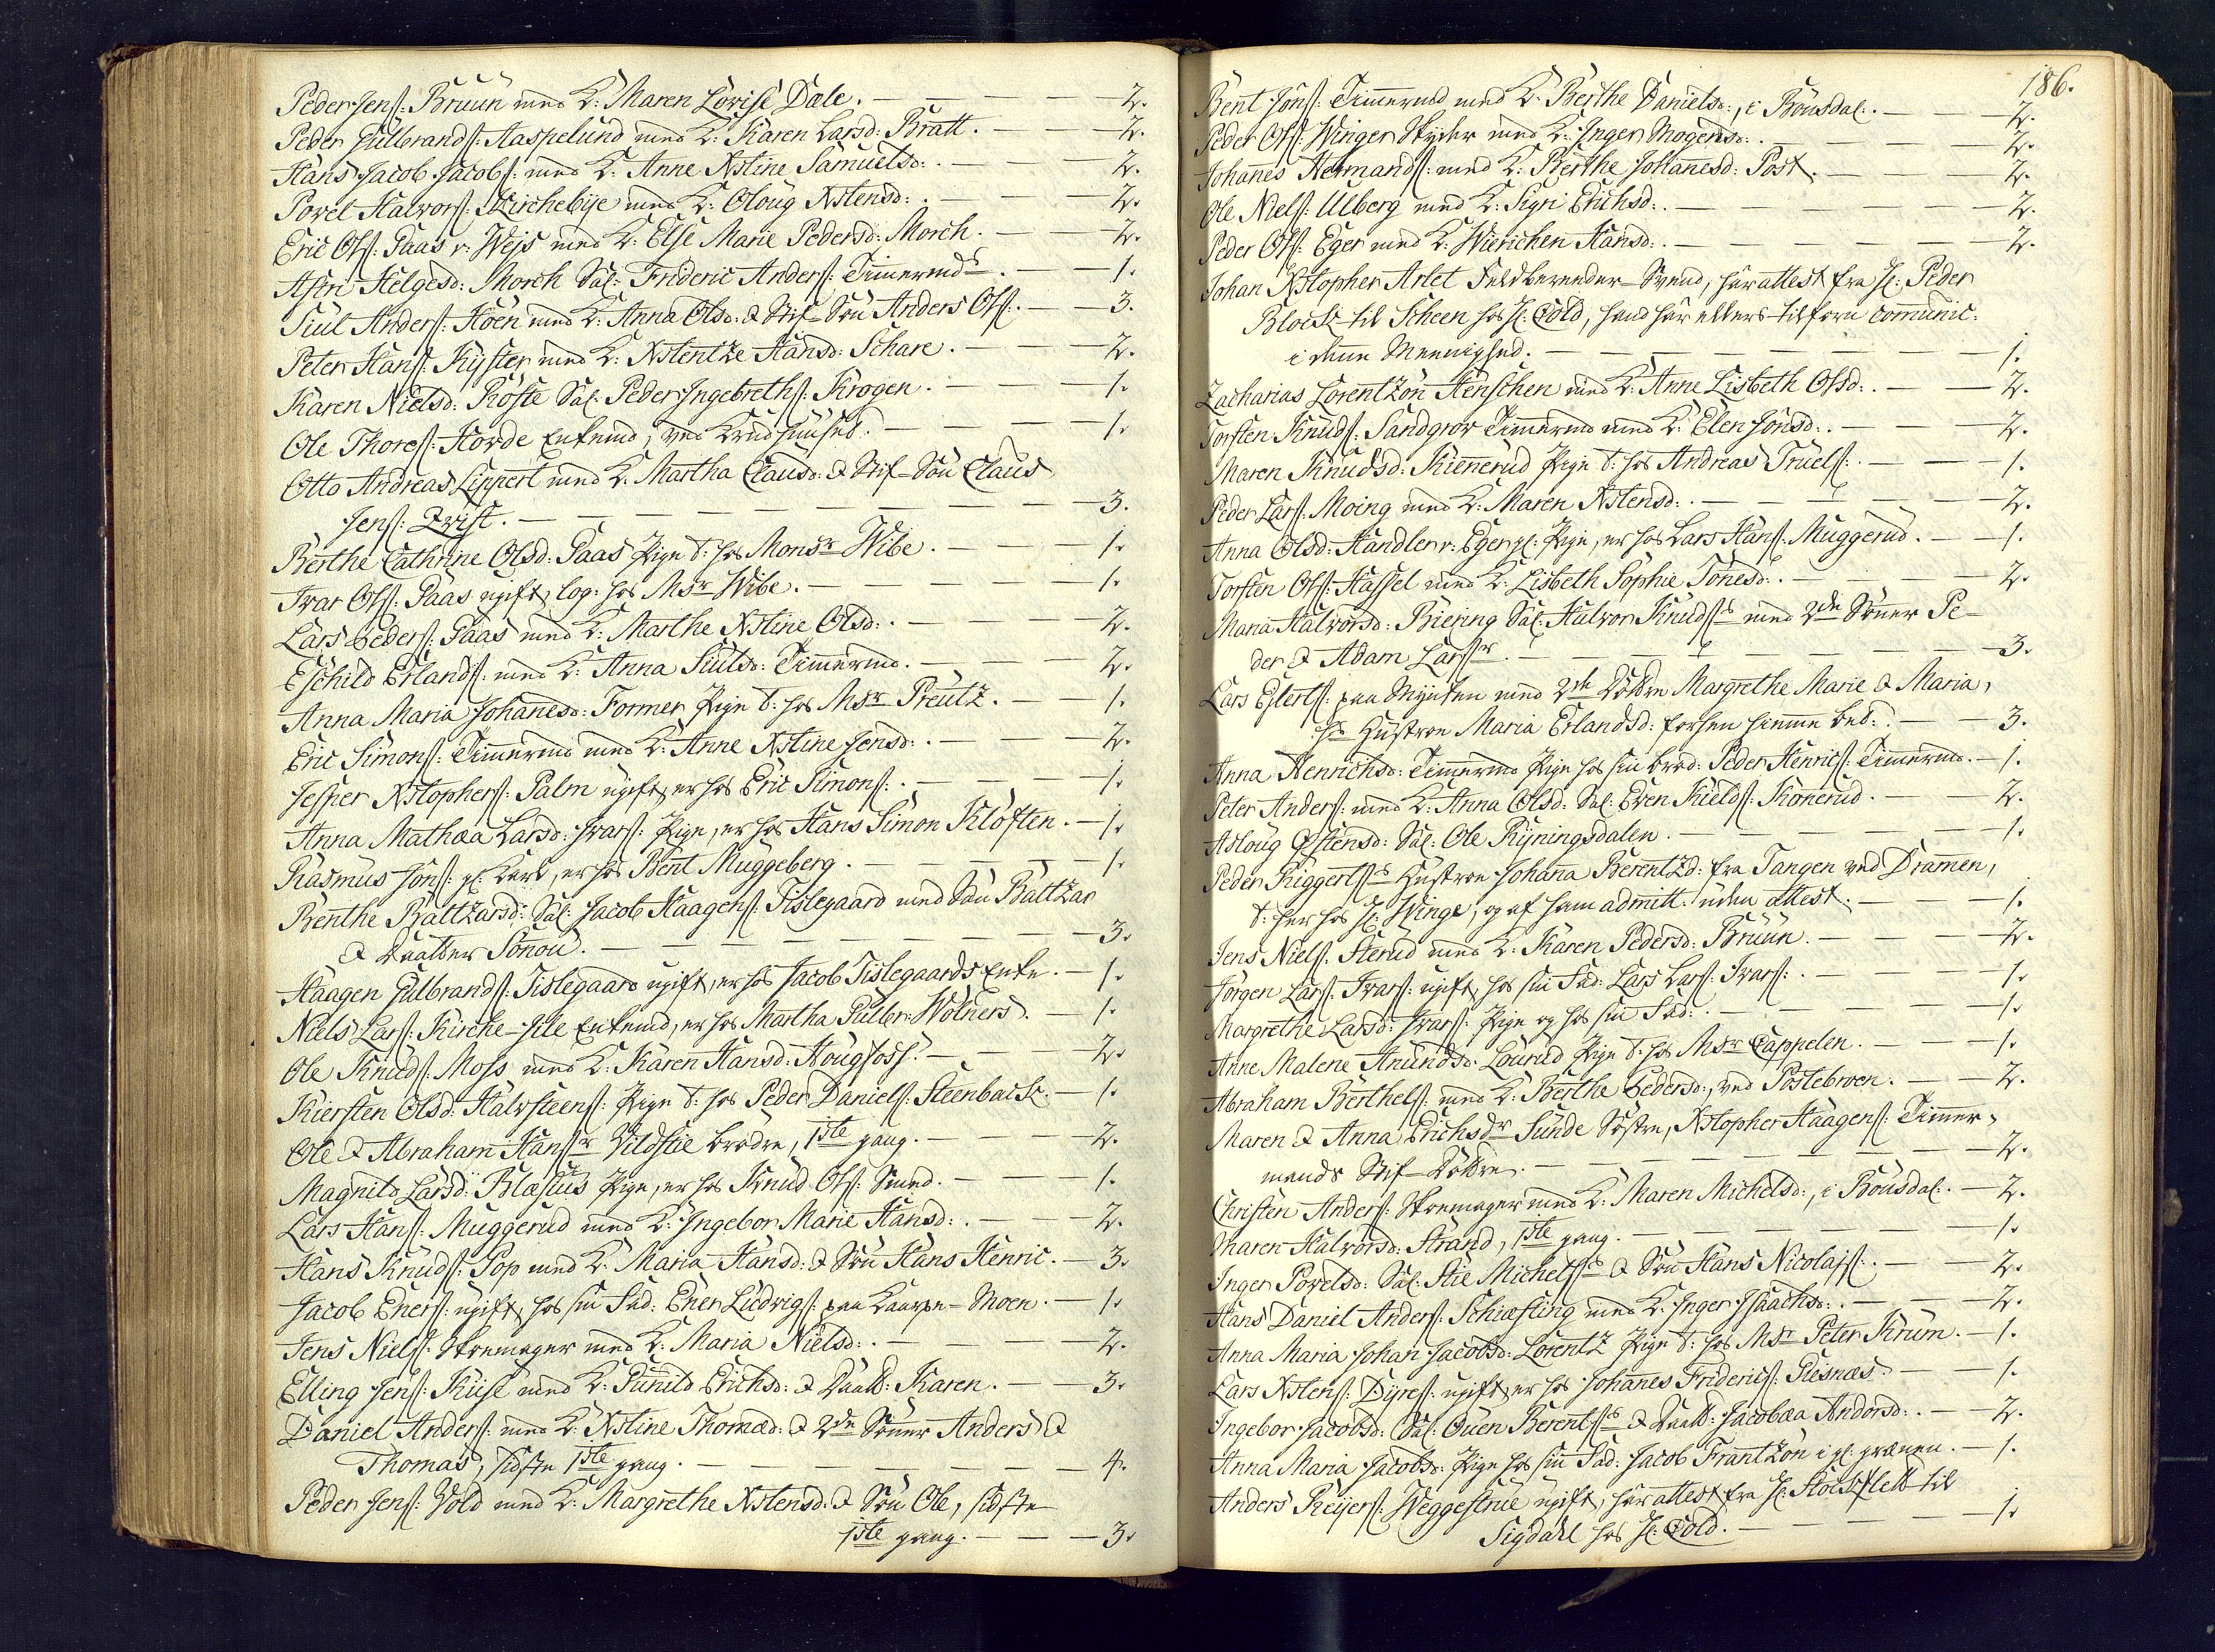 Peder Jens: Bruun med K: Maren Lovise Dale. — 2.
Peder Gulbrands: Aaspelund med K: Karen Larsd: Bratt. — 2.
Hans Jacob Jacobs: med K: Anne Xstine Samuelsd: — 2.
Povel Halvors: Kirchebye med K: Oloug Xstensd: — 2.
Eric Ols: Paas v: Wejs med K: Else Marie Pedersd: Morch. — 2.
Astri Helgesd: Morch Sal: Frideric Anders: Timermds. — 1.
Siul Anders: Hoen med K: Anna Olsd: & Stif-Søn Anders Ols: — 3.
Peter Hans: Kyster med K: Xstentze Hansd: Schare. — 2.
Karen Nielsd: Røste Sal: Peder Ingebreths: Krogen. — 1.
Ole Thores: Horde Enkemd, ved Krudhuuset. — 1.
Otto Andreas Lippert med K: Martha Clausd: & Stif-Søn Claus
Jens: Qvist. — 3.
Berthe Cathrine Olsd: Paas Pige t: hos Monsr Wibe. — 1.
Ivar Ols: Paas ugift, log: hos Msr Wibe. — 1.
Lars Peders: Paas med K: Marthe Xstine Olsd: — 2.
Eschild Erlands: med K: Anna Siulsd: Timermd. — 2.
Anna Maria Johanesd: Former Pige t: hos Msr Preutz. — 1.
Eric Simons: Timermd med K: Anne Xstine Jensd: — 2.
Jesper Xstophers: Palm ugift, er hos Eric Simons: — 1.
Anna Mathæa Larsd: Ivars: Pige, er hos Hans Simon Kløften. — 1.
Rasmus Jøns: gl: Karl, er hos Bent Muggeberg. — 1.
Benthe Baltzarsd: Sal: Jacob Haagens: Tislegaard med Søn Baltzar
& Daatter Sonou. — 3.
Haagen Gulbrands: Tislegaard ugift, er hos Jacob Tislegaards Enke. — 1.
Niels Lars: Kirche-Jile Enkemd, er hos Martha Gulbr: Wolners. — 1.
Ole Knuds: Moss med K: Karen Hansd: Hougfoss. — 2.
Kiersten Olsd: Halvsteens: Pige t: hos Peder Daniels: Steenbach. — 1.
Ole & Abraham Hansr Vildstie brødre, 1ste gang. — 2.
Magnild Larsd: Blasius Pige, er hos Knud Ols: Smed. — 1.
Lars Hans: Muggerud med K: Ingebor Marie Hansd: — 2.
Hans Knuds: Pop med K: Maria Hansd: & Søn Hans Henric. — 3.
Jacob Eners: ugift, hos sin Fad: Ener Ludvigs: paa Laarpe-Moen. — 1.
Jens Niels: Skoemager med K: Maria Nielsd: — 2.
Elling Jens: Kiise med K: Gunild Erichsd: & Daatt: Karen. — 3.
Daniel Anders: med K: Xstine Thomæd: & 2de Sønner Anders &
Thomas, sidste 1ste gang. — 4.
Peder Jens: Vold med K: Margrethe Xstensd: & Søn Ole, sidste
1ste gang. — 3.
186.
Bent Jøns: Timermd med K: Berthe Danielsd:, i Bønsdal. — 2.
Peder Ols: Winger Skyder med K: Inger Mogensd: — 2.
Johanes Hermands: med K: Berthe Johanesd: Post. — 2.
Ole Niels: Ulberg med K: Sigri Erichsd: — 2.
Peder Ols: Eger med K: Wierichen Hansd: — 2.
Johan Xstopher Arlet Feldbereeder-Svend, har attest fra Hr: Peder
Block til Scheen hos Hr: Cold, hand har ellers tilforn comunic:
i denne Meenighed. — 1.
Zacharias Lorentzon Henschen med K: Anne Lisbeth Olsd: — 2.
Torsten Knuds: Sandgrov Timermd med K: Elen Jonsd: — 2.
Maren Knudsd: Kiennerud Pige t: hos Andreas Truels: — 1.
Peder Lars: Moing med K: Maren Xstensd: — 2.
Anna Olsd: Handler v: Eger gl: Pige, er hos Lars Hans: Muggerud. — 1.
Torsten Ols: Hassel med K: Lisbeth Sophie Tønesd: — 2.
Maria Halvorsd: Biering Sal: Halvor Knudss med 2de Sønner Pe-
der & Adam Larssr. — 3.
Lars Ejlerts: paa Mynten med 2de Døttre Margrethe Marie & Maria,
hs Hustroe Maria Erlandsd: forhen hiemme ber: — 3.
Anna Henrichsd: Timermd Pige hos sin brod: Peder Henrics: Timermd. — 1.
Peter Anders: med K: Anna Olsd: Sal: Even Kields: Konerud. — 2.
Asloug Østensd: Sal: Ole Ryningsdalen. — 1.
Peder Riggertss Hustroe Johana Berentzd: fra Tangen ved Dramen,
t: her hos Hr: Winge, og af ham admitt: uden attest. — 1.
Jens Niels: Sterud med K: Karen Pedersd: Bruun. — 2.
Jørgen Lars: Ivars: ugift, hos sin Fad: Lars Lars: Ivars: — 1.
Margrethe Larsd: Ivars: Pige og hos sin Fad: — 1.
Anne Malene Anundsd: Lourud Pige t: hos Msr Cappelen. — 1.
Abraham Berthels: med K: Berthe Pedersd:, ved Postebroen. — 2.
Maren & Anna Erichsdr Sunde Søstre, Xstopher Haagens: Timer-
mands Stif-Døttre. — 2.
Christen Anders: Skoemager med K: Maren Michelsd:, i Bønsdal. — 2.
Maren Halvorsd: Strand, 1ste gang. — 1.
Inger Povelsd: Sal: Stie Michelss & Søn Hans Nicolajs: — 2.
Hans Daniel Anders: Schiefling med K: Inger Isaachsd: — 2.
Anna Maria Johan Jacobsd: Lorentz Pige t: hos Msr Peter Krum. — 1.
Lars Xstens: Dyres: ugift, er hos Johanes Friderics: Resnæs. — 1.
Ingebor Jacobsd: Sal: Ouen Berentss & Daatt: Jacobæa Andorsd: — 2.
Anna Maria Jacobsd: Pige hos sin Fad: Jacob Frantzon i gl: grænen. — 1.
Anders Reijers: Weggestrue ugift, har attest fra Hr: Stockfleth til
Sigdahl hos Hr: Cold. — 1.